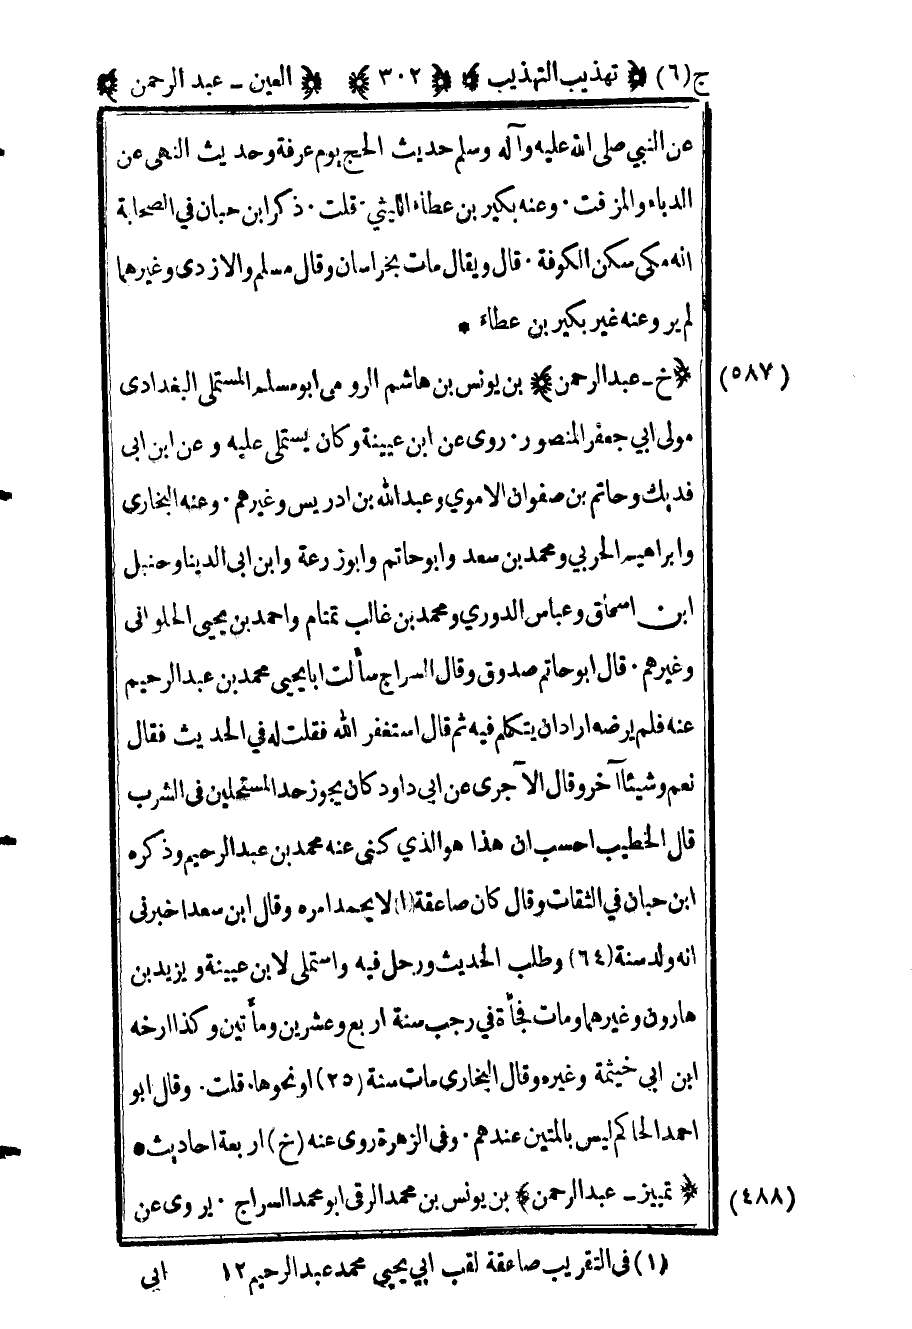 ج(٦) ﴿ تهذيب التهذيب ﴾ ﴿ ٣٠٢ ﴾ ﴿ العين ـ عبد الرحمن ﴾
عن النبي صلى الله عليه وآله وسلم حديث الحج يوم عرفة وحديث النهى عن
الدباء والمزفت ٠ وعنه بكير بن عطاء الليثي ٠ قلت ٠ ذكر ابن حبان في الصحابة
انه مكى سكن الكوفة ٠ قال ويقال مات بخراسان وقال مسلم والازدى وغيرهما
لم يرو عنه غير بكير بن عطاء *
(٥٨٧) ﴿ خ ـ عبد الرحمن ﴾ بن يونس بن هاشم الرومى ابو مسلم المستملى البغدادى
مولى ابي جعفر المنصور ٠ روى عن ابن عيينة وكان يستملى عليه وعن ابن ابى
فديك وحاتم بن صفوان الاموي وعبد الله بن ادريس وغيرهم ٠ وعنه البخارى
وابراهيم الحربي ومحمد بن سعد وابو حاتم وابو زرعة وابن ابى الدنيا وحنبل
ابن اسحاق وعباس الدوري ومحمد بن غالب تمتام واحمد بن يحيى الحلوانى
وغيرهم ٠ قال ابو حاتم صدوق وقال السراج سألت ابا يحيى محمد بن عبد الرحيم
عنه فلم يرضه اراد ان يتكلم فيه ثم قال استغفر الله فقلت له في الحديث فقال
نعم وشيئا آخر وقال الآجرى عن ابى داود كان يجوز حد المستحلين فى الشرب
قال الخطيب احسب ان هذا هو الذي كنى عنه محمد بن عبد الرحيم وذكره
ابن حبان في الثقات وقال كان صاعقة (١) لا يحمد امره وقال ابن سعد اخبرنى
انه ولد سنة (٦٤) وطلب الحديث ورحل فيه واستملى لابن عيينة ويزيد بن
هارون وغيرهما ومات فجأة في رجب سنة اربع وعشرين ومأتين وكذا ارخه
ابن ابي خيثمة وغيره وقال البخارى مات سنة (٢٥) او نحوها ٠ قلت ٠ وقال ابو
احمد الحاكم ليس بالمتين عندهم ٠ وفى الزهرة روى عنه (خ) اربعة احاديث *
(٤٨٨) ﴿ تمييز ـ عبد الرحمن ﴾ بن يونس بن محمد الرقى ابو محمد السراج ٠ يروى عن
(١) فى التقريب صاعقة لقب ابي يحيى محمد عبد الرحيم ١٢ ابى